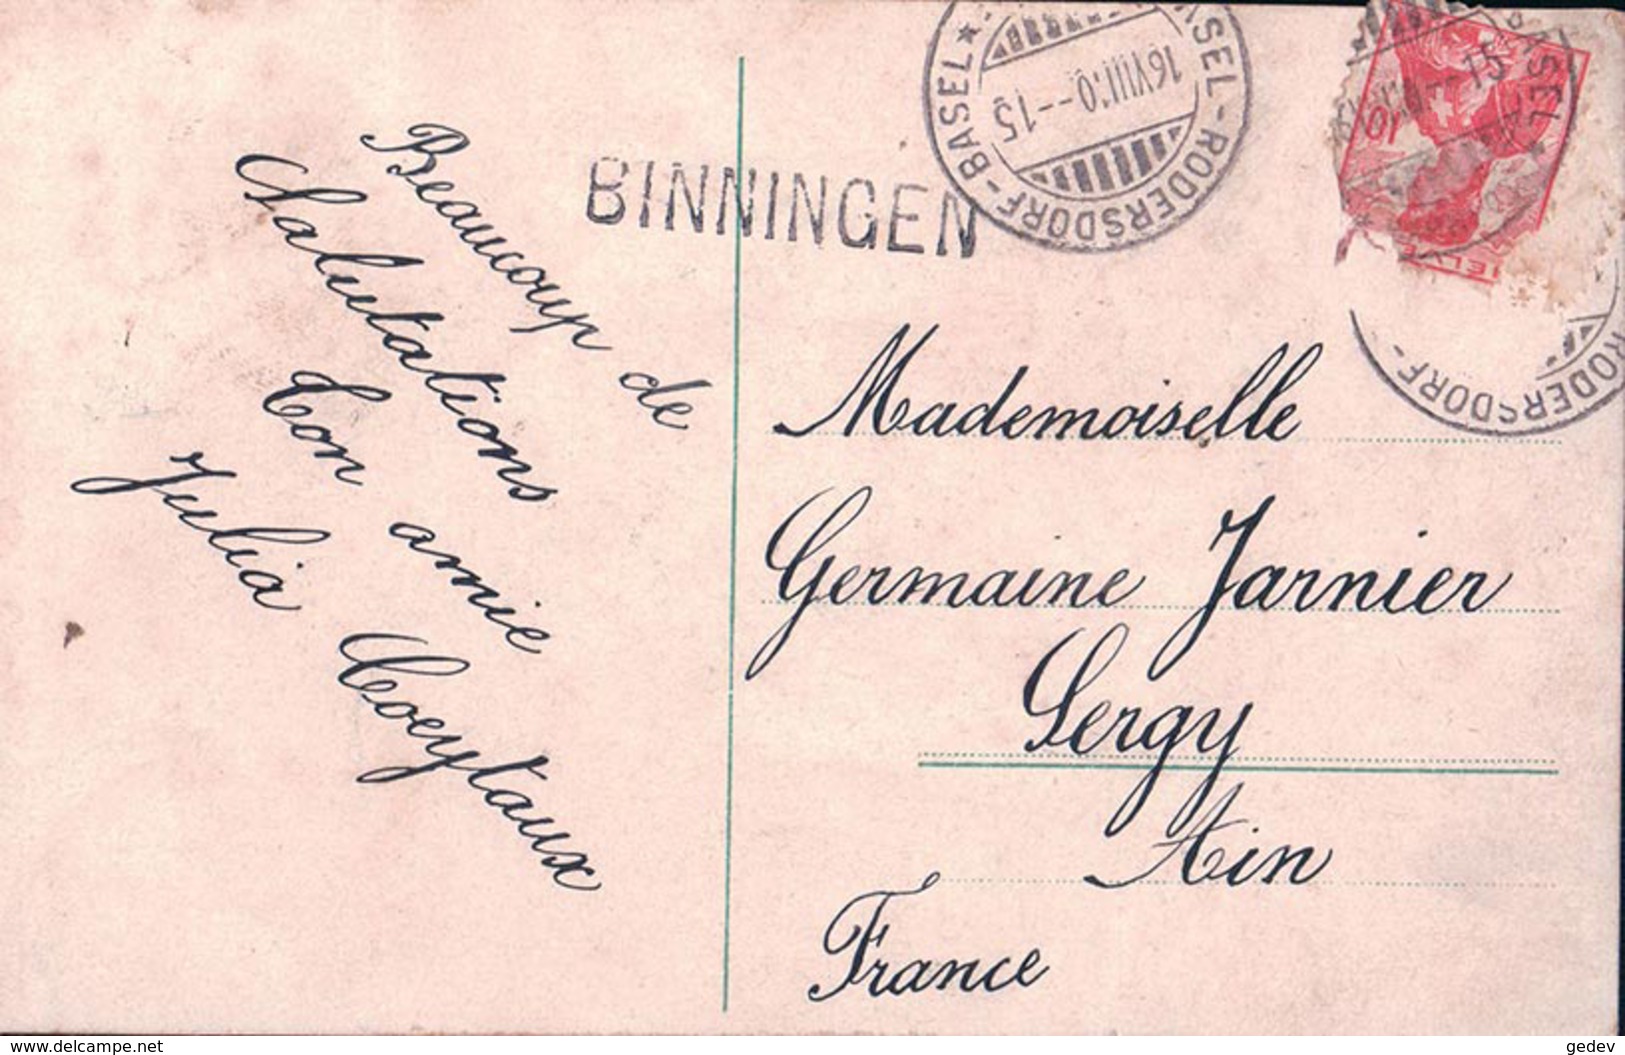 Beaucoup de
Salutations
Ton amie
Julia Coeytaux
BINNINGEN
BASEL - RODERSDORF - BASEL
16.VIII.10--15
10
HELV
BASEL
RODERSDORF -
--15
Mademoiselle
Germaine Jarnier
Sergy
Ain
France
www.delcampe.net
gedev